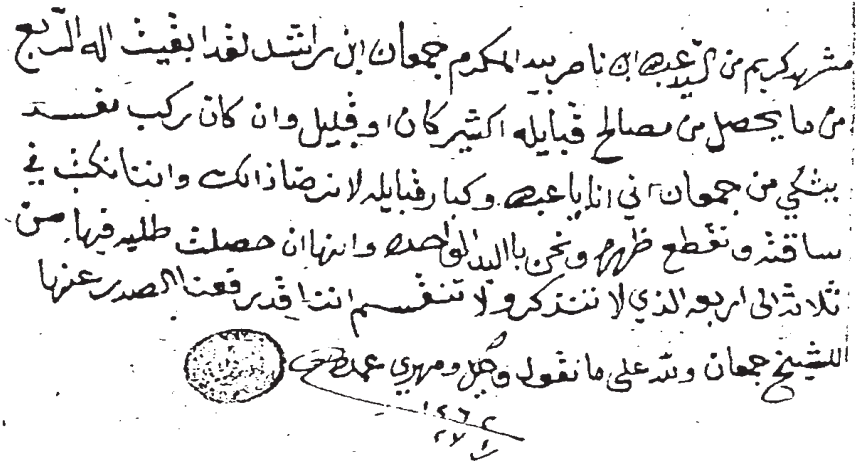 مشهد كريم من السيد عبده ابن ناصر بيد المكرم جمعان ابن راشد لقد ابقيت اله الربع
من ما يحصل من مصالح قبايله اكثير كان او قليل وان كان ركب نفسد
بشكي من جمعان اني انا يا عبده وكبار قبايله لا نرضا ذالك واننا نكبث في
ساقته ونقطع ظهره ونحن با اليد الواحده وانها ان حصلت طليه فيها من
ثلاثة الى اربعه الذي لا تتذكر ولا تنقسم انتا قد رفعت الصدر عنها
للشيخ جمعان ولله على ما نقول وكيل ومهري عمده
١٢٦٢
٢٧